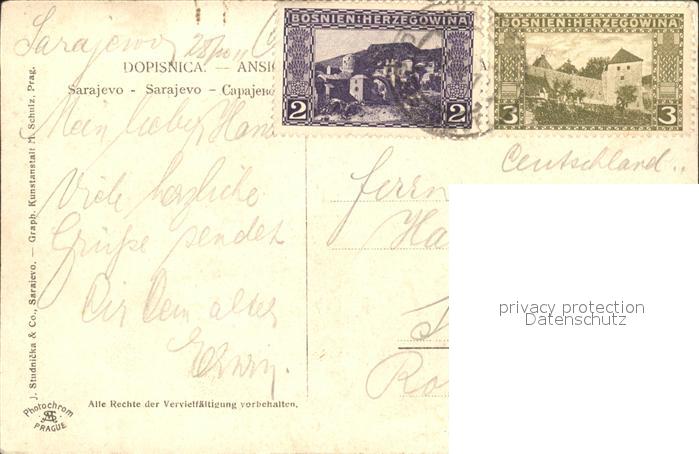 Sarajevo
BOSNIEN:HERZEGOWINA
2 2
BOSNIEN:HERZEGOWINA
3 3
DOPISNICA. — ANSI
Sarajevo - Sarajevo - Сарајево
Mein lieber Hans
Viele herzliche
Grüße sendet
Dir Dein alter
Erwin.
Deutschland
Herrn
Ha
Ro
privacy protection
Datenschutz
J. Studnička & Co., Sarajevo. — Graph. Kunstanstalt M. Schulz, Prag.
Photochrom
PRAGUE
Alle Rechte der Vervielfältigung vorbehalten.